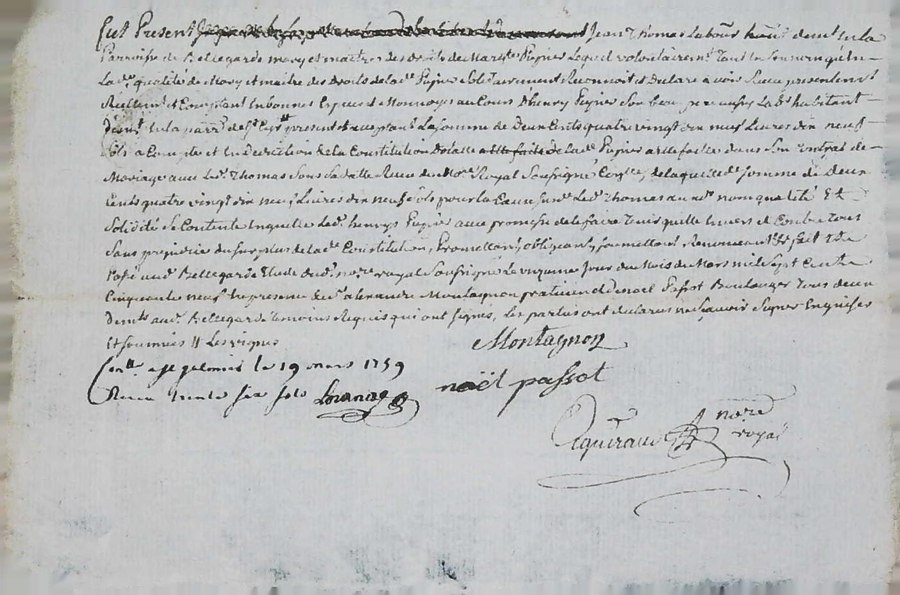 fut Present Jean Thomas Laboureur habt demt en la
Parroisse de Bellegarde mary et maitre des droits de Margte Pupier Lequel volontairemt tant en son nom qu'en
La de qualité de Mary et maitre des droits de lade Pupier Solidairement Reconnoit et declare avoir Receu presentemt
Reellemt et Comptant en bonnes Especes et Monnoyes au Cours d'henry Pupier Son beau pere habitant
demt en la parre de St present et acceptant La somme de Deux Cents quatre vingt dix neuf Livres dix neuf
sols a Compte et en deduction de la Constitution a lade Pupier a elle faitte dans Son Contrat de
Mariage avec led. Thomas Sous Sa datte Receu du Nore Royal Soussigné de laquelle de somme de deux
Cents quatre vingt dix neuf Livres dix neuf sols pour la Cause led. Thomas aud. nom qualité Et
Solidité Se Contente En quitte led. henry Pupier avec promesse de le faire tenir quitte Envers et Contre tous
Sans prejudice du surplus de lade Constitution, Promettant, obligeant, soumettant Renonceant &c fait Et
Passé aud. Bellegarde Etude dud. nore royal Soussigné Le onzieme Jour du Mois de Mars mil Sept Cents
Cinquante neuf En presence de Sr alexandre Montagnon praticien et de noel Passot Boulanger tous deux
demts aud. Bellegarde temoins Requis qui ont Signés, Les parties ont declarés ne Sçavoir Signer Enquises
Et Sommées
Montagnon
Conllé a St galmier le 19 mars 1759
Receu trente six sols
noël passot
nore
royal